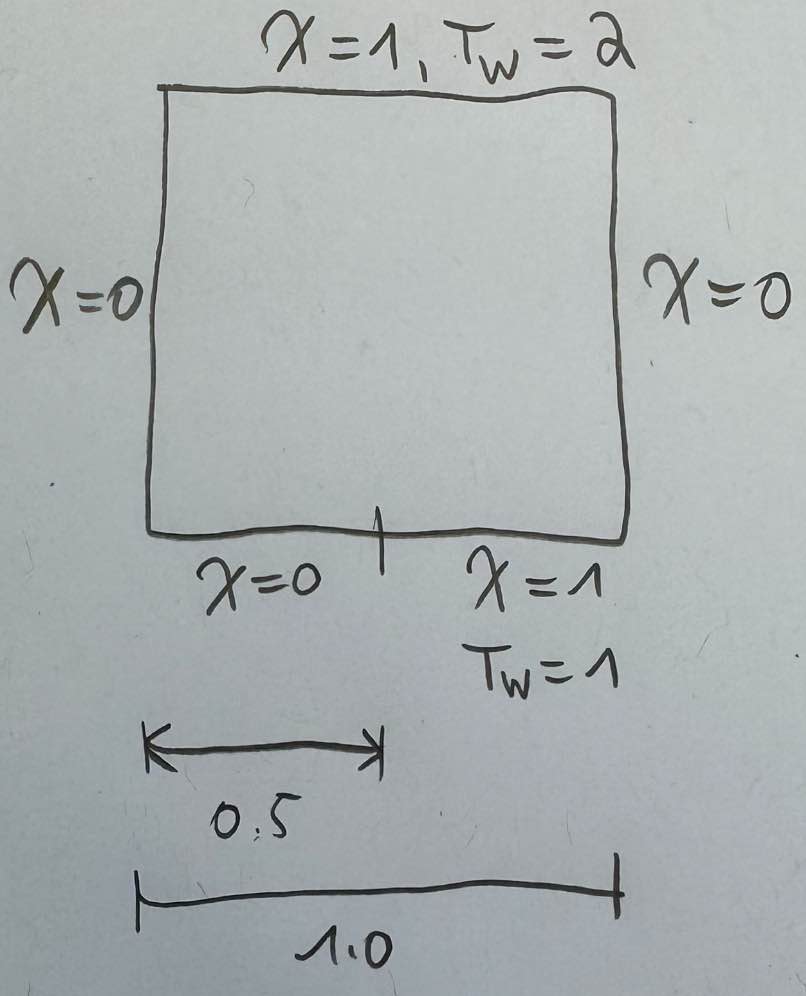 χ=1, Tw=2
χ=0
χ=0
χ=0
χ=1
Tw=1
0.5
1.0